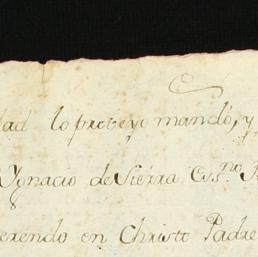 dad lo proveyo mandó, y
Ygnacio de Sierra Ess.no
erendo en Christo Padre